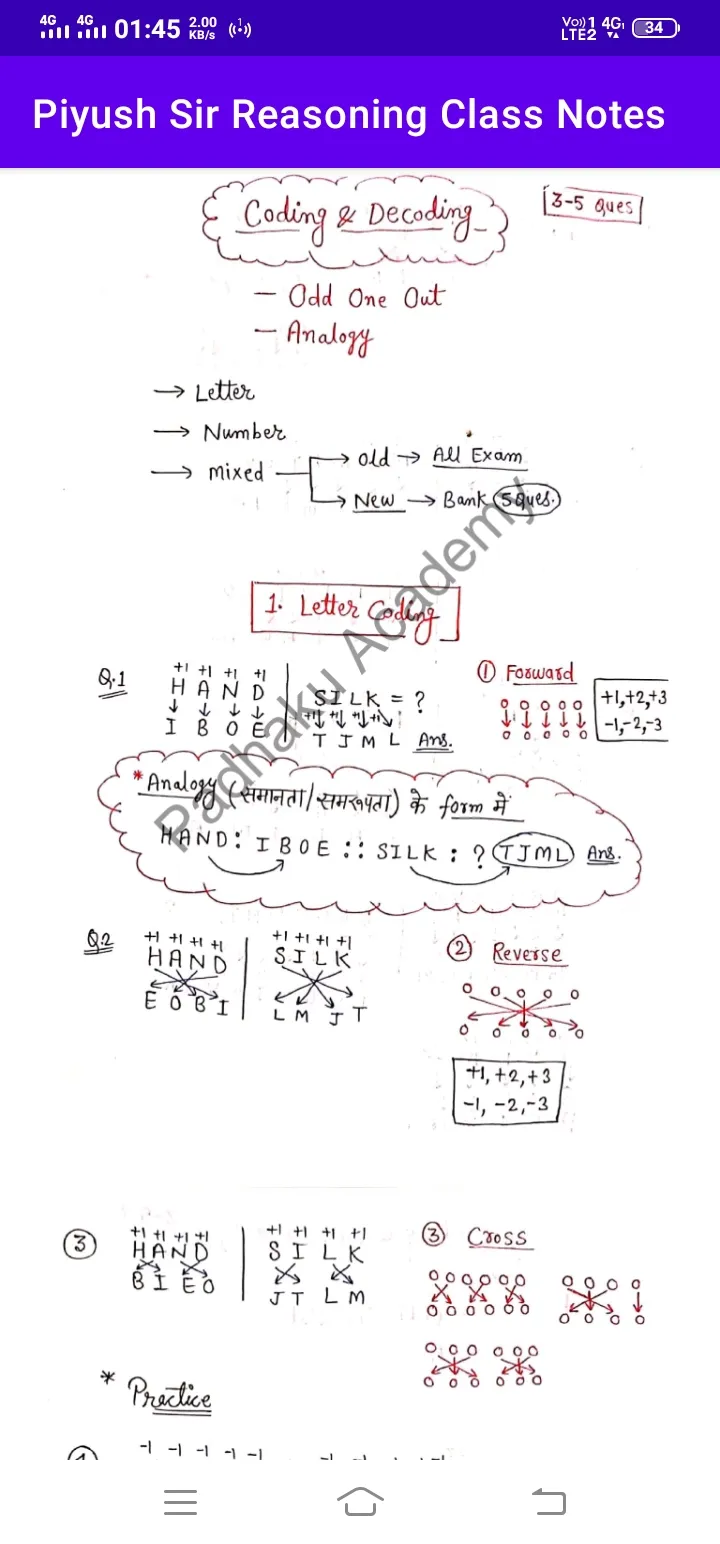 4G 4G 01:45 2.00 KB/s Vo)) 1 LTE2 4G 34
Piyush Sir Reasoning Class Notes
Coding & Decoding
3-5 Ques
- Odd One Out
- Analogy
→ Letter
→ Number
→ mixed → old → All Exam
→ New → Bank 5 ques.
Padhaku Academy
1. Letter Coding
Q.1
+1 +1 +1 +1
H A N D
↓ ↓ ↓ ↓
I B O E
SILK = ?
+1↓ +1↓ +1↓ +1↓
T J M L Ans.
① Forward
+1,+2,+3
-1,-2,-3
* Analogy (समानता/समरूपता) के form में
HAND : IBOE :: SILK : ? TJML Ans.
Q.2
+1 +1 +1 +1
HAND
E O B I
+1 +1 +1 +1
SILK
L M J T
② Reverse
+1, +2, +3
-1, -2, -3
③
+1 +1 +1 +1
HAND
B I E O
+1 +1 +1 +1
S I L K
J T L M
③ Cross
* Practice
-1 -1 -1 -1 -1